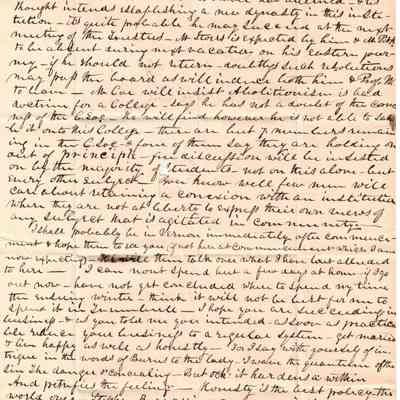 thought intends establishing a new dynasty in this insti-
tution - its quite probable he may succeed at the next
meeting of the Trustees - M is expected by him &
to be absent during next vacation on his eastern jour-
ney - if he should not return - doubtless such resolutions
may pass the board as will induce both him & Prof M
to leave - M Coe will insist Abolitionism is bad
doctrine for a College - says he has not a doubt of the concur
 of the - He will find however he is not able to
 this College - there are but 7 members remain
ing in the & four of them say they are holding on
out of principle - free discussion will be insisted
on by the majority of students not on this alone - but
every other subject - You know well few men will
care about retaining a conexion with an institution
where they are not at liberty to express their own views of
any subject that is agitated in community -
I shall probably be in Vernon immediately after commence
ment & hope then to see you, if not here at commencement which I am
now expecting - then talk over what I have but alluded
to here - I can not spend but a few days at home if I go
out now - have not yet concluded where to spend my time
the ensuing winter - think it will not be best for me to
spend it in I hope you are succeeding in
business - & as you told me your intended - as soon as practica
ble reduce your business to a regular system - get married
& live happy as well as honestly - For I say with yourself of in-
trigue in the words of Burns to this lady - I waive the quantum of the
sin The danger of concealing - But och it hardens a' within
And petrifies the feeling - Honesty is the best policy this
world over